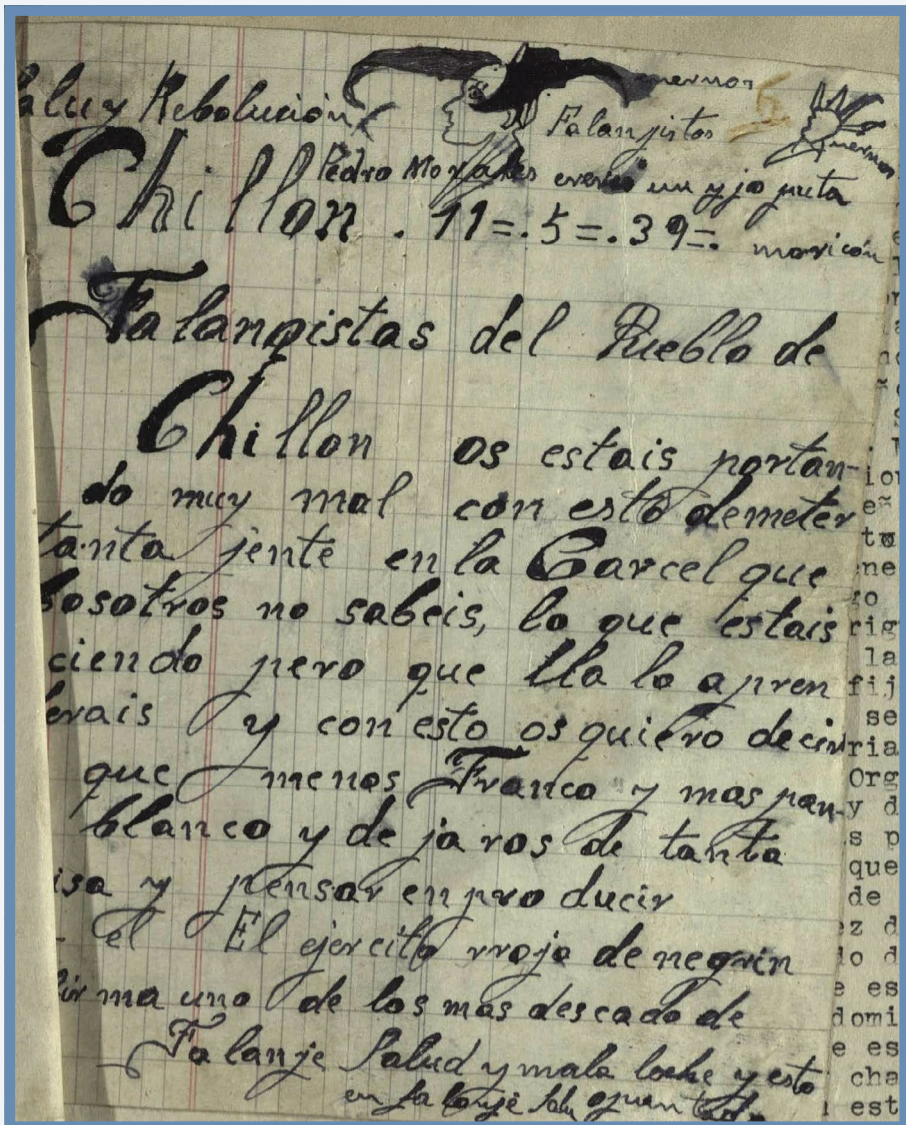 Salu y Rebolución
Falangistos
Pedro Morales eres un yjo puta
Chillon . 11=.5=.39=. moricón
Falangistas del Pueblo de
Chillon os estais portan-
do muy mal con esto demeter
tanta jente en la Carcel que
bosotros no sabeis, lo que estais
ciendo pero que lla lo apren
derais y con esto os quiero decir
que menos Franco y mas pan
blanco y de jaros de tanta
isa y pensar enpro ducir
el El ejercito rrojo denegrin
fir ma uno de los mas descado de
Falanje Salud y mala leche y esto
en falanje